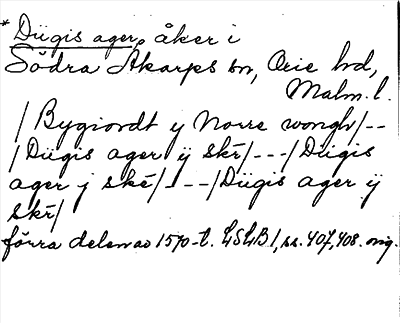 * Diigis ager, åker i
Södra Åkarps sn, Oxie hd,
Malm. l.
/ Bygiordt y Norre wongh/--
/Diigis ager ÿ skr/---/Diigis
ager j ske/---/Diigis ager ÿ
skr/
förra delen av 1570-t. LSLB 1, ss. 407, 408. orig.